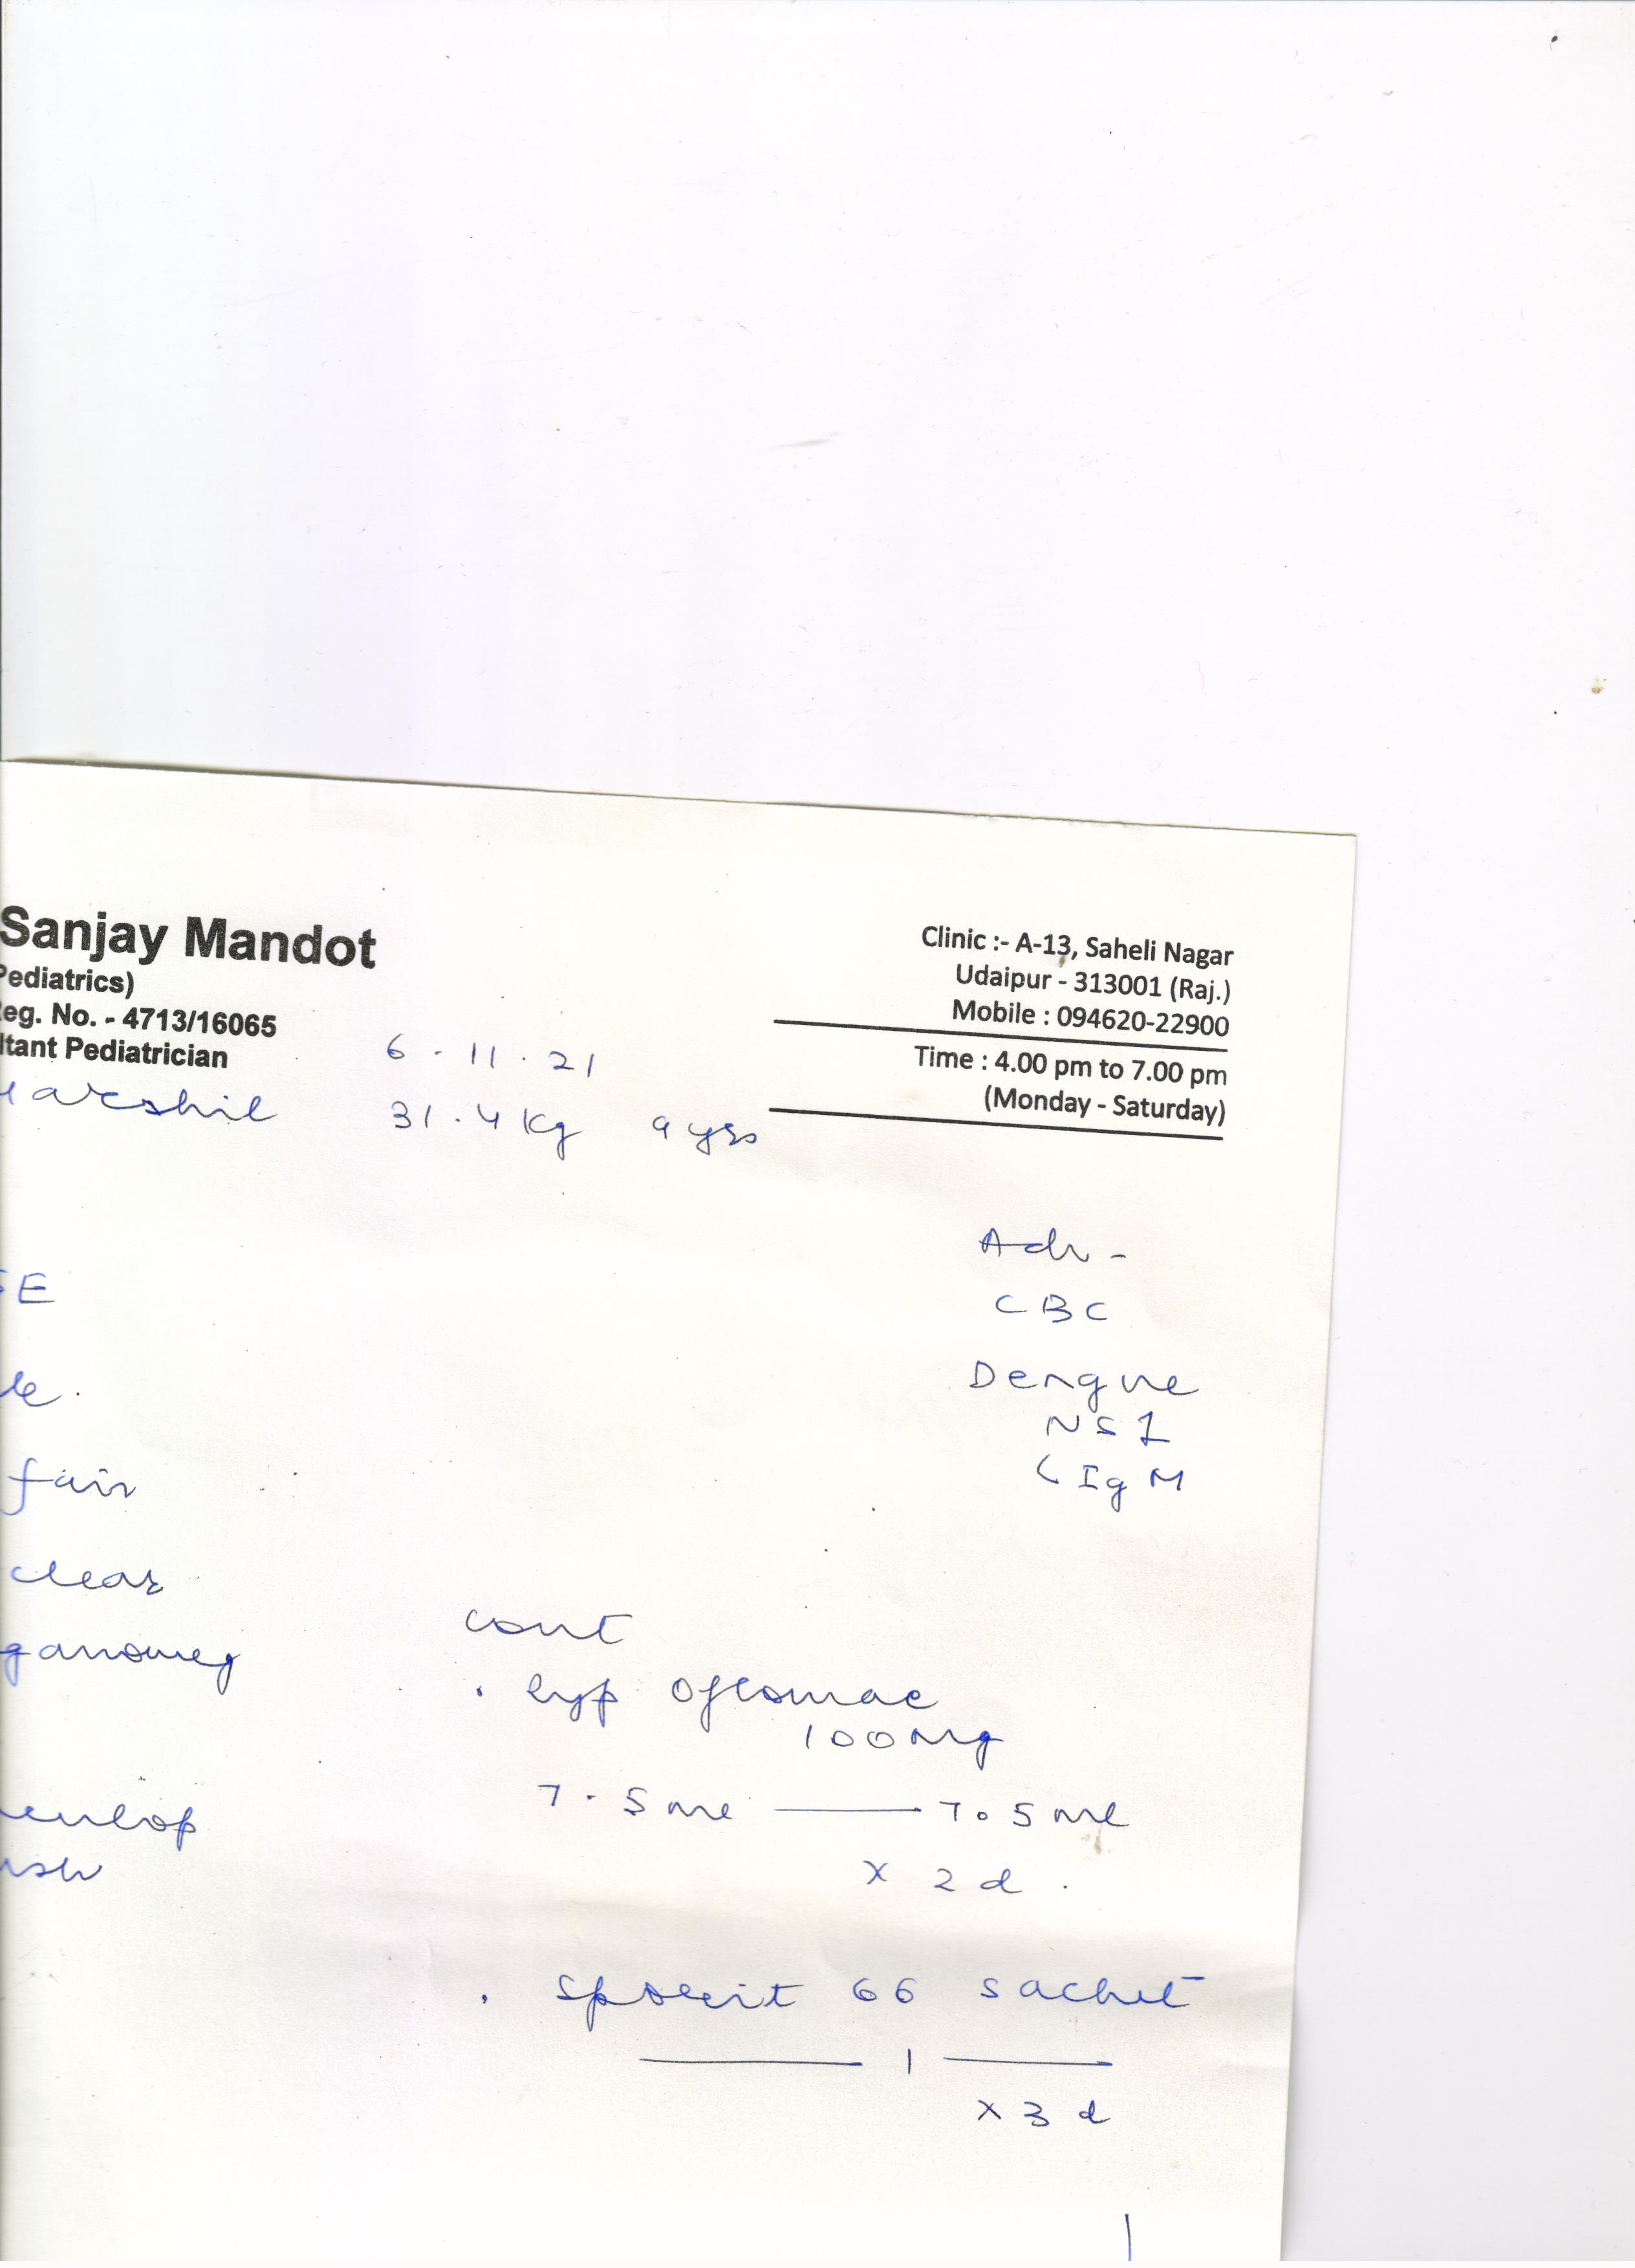 Sanjay Mandot
Pediatrics)
eg. No. - 4713/16065
ltant Pediatrician
Clinic :- A-13, Saheli Nagar
Udaipur - 313001 (Raj.)
Mobile : 094620-22900
Time : 4.00 pm to 7.00 pm
(Monday - Saturday)
6 . 11 . 21
Harshil 31.4 kg 9 yrs
Adv -
CBC
Dengue
NS1
IgM
E
fair
clear
ganomeg
cont
. Syp Oflomac
100 mg
7.5 ml — 7.5 ml
x 2 d .
. 66 sachet
— 1 —
x 3 d